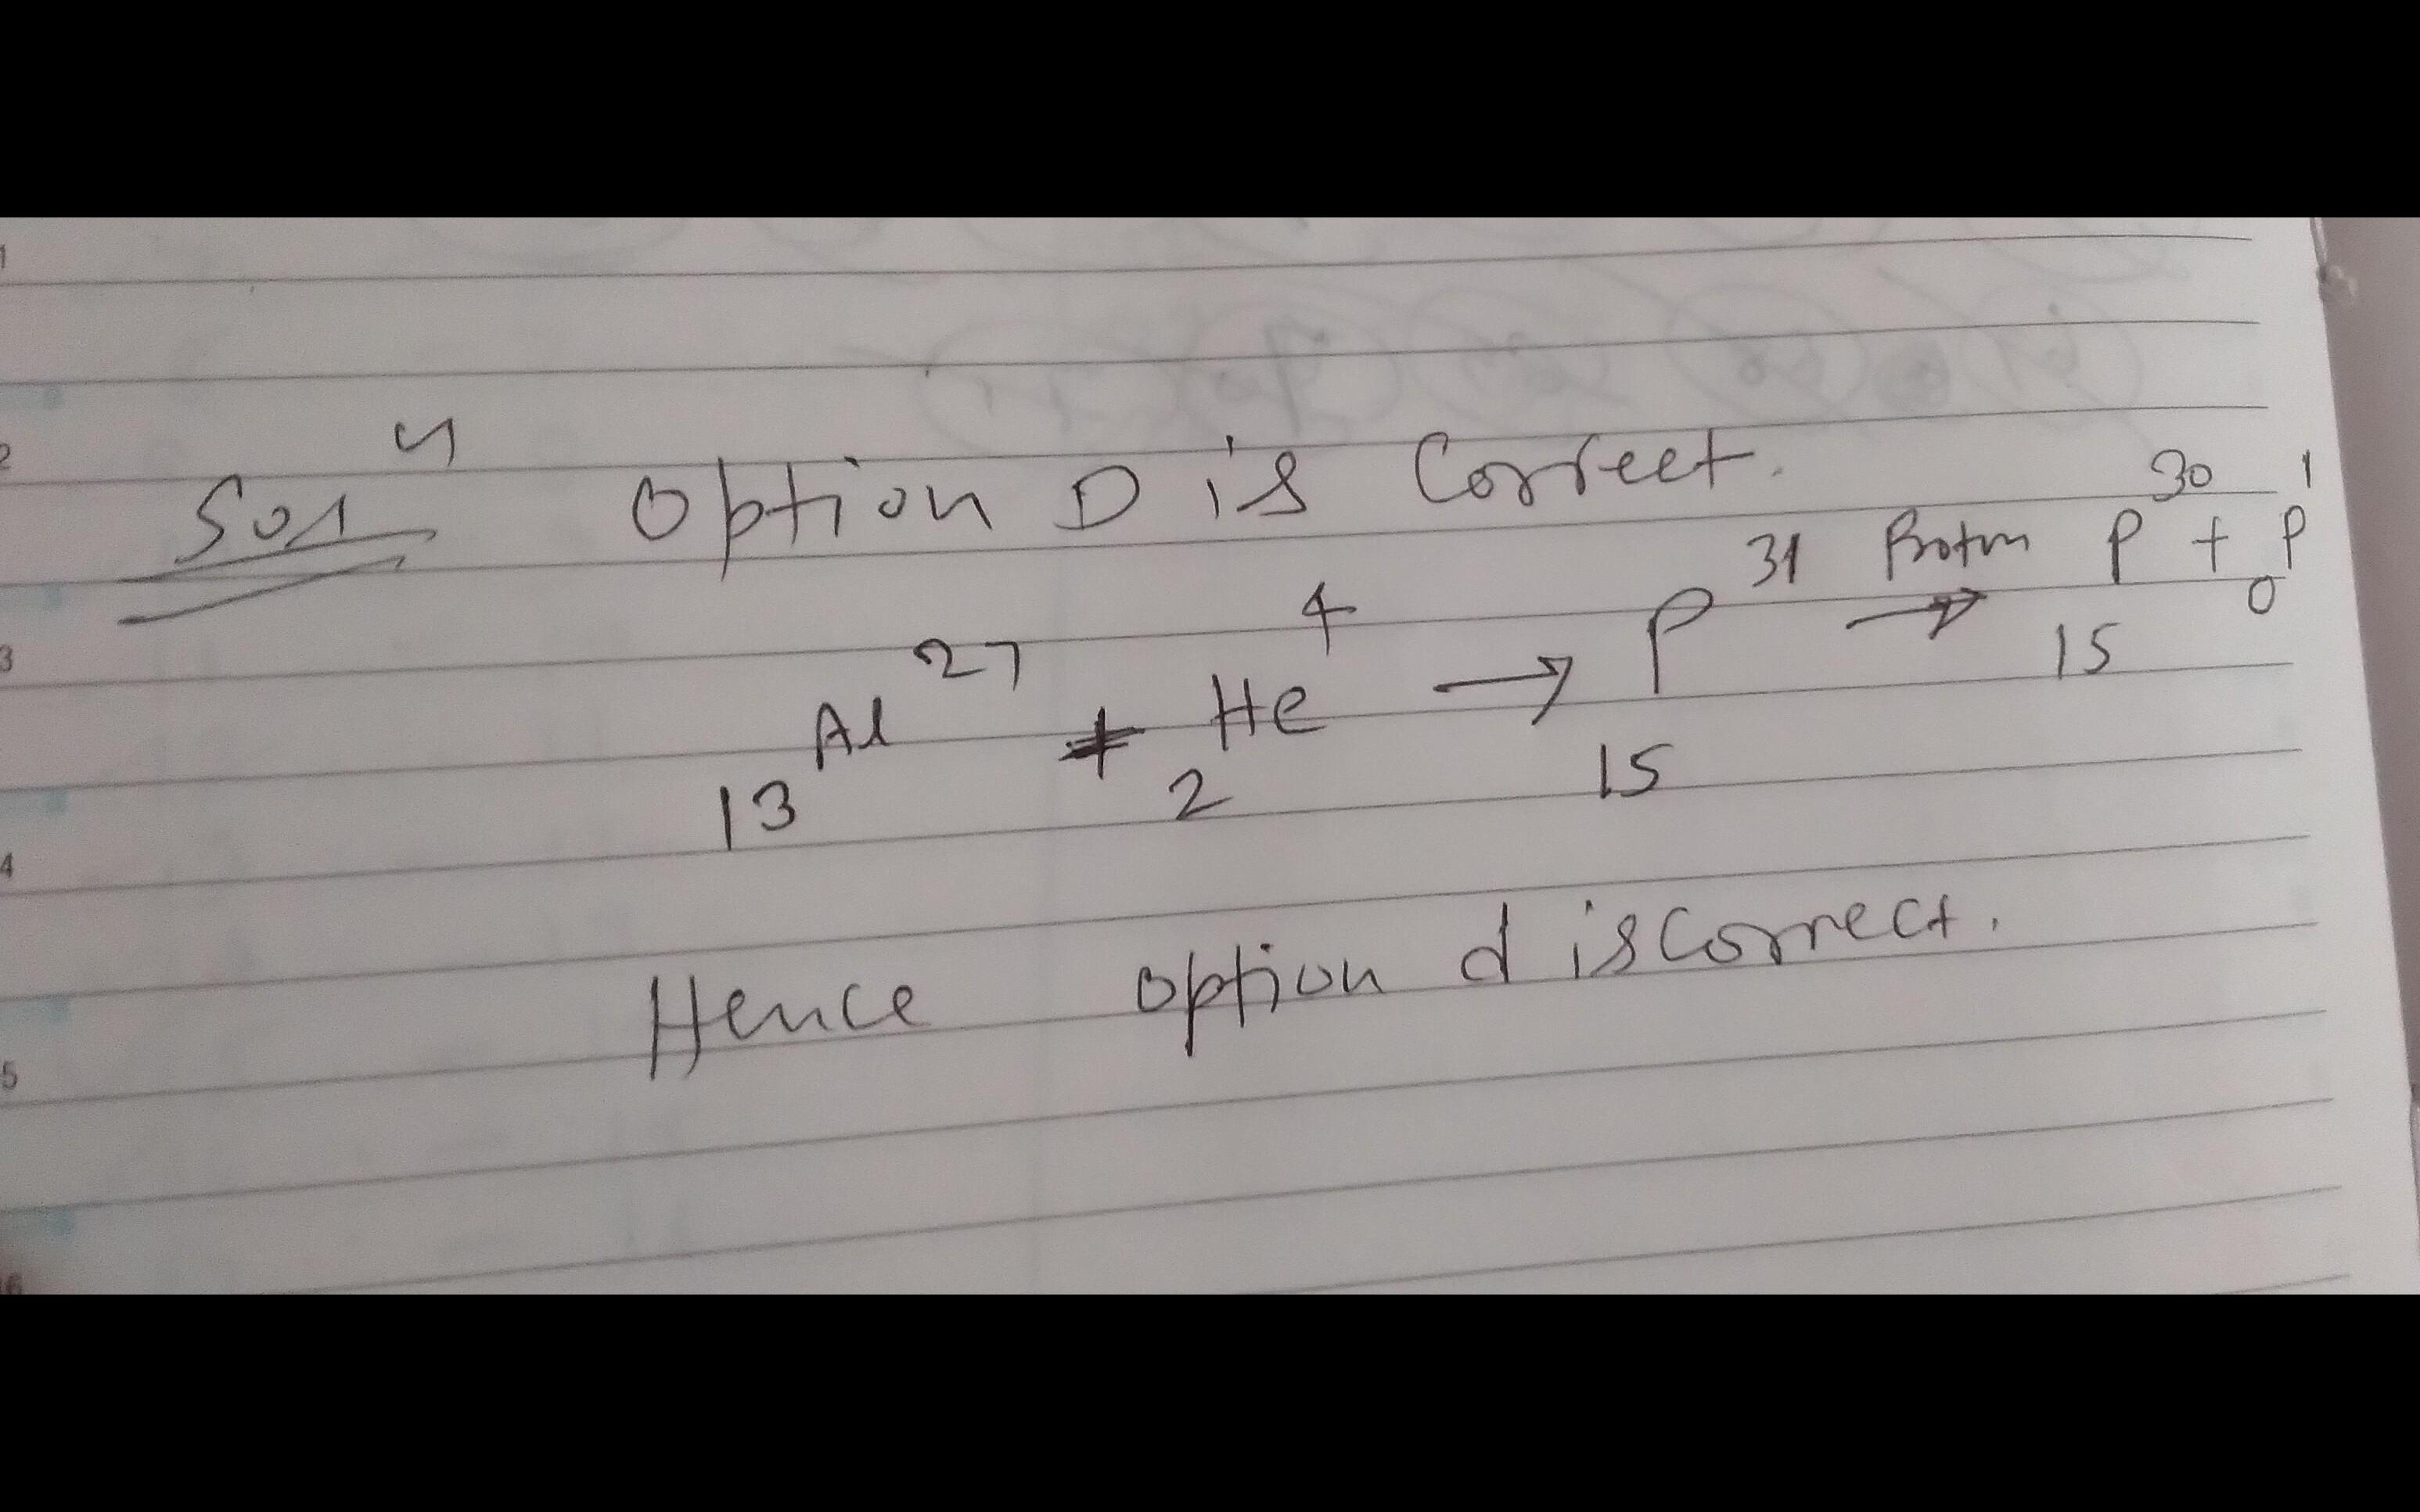 Solⁿ Option D is Correct.
₁₃Al²⁷ + ₂He⁴ → ₁₅P³¹ Proton → ₁₅P³⁰ + ₀P¹
Hence option d is correct.
1
2
3
4
5
16